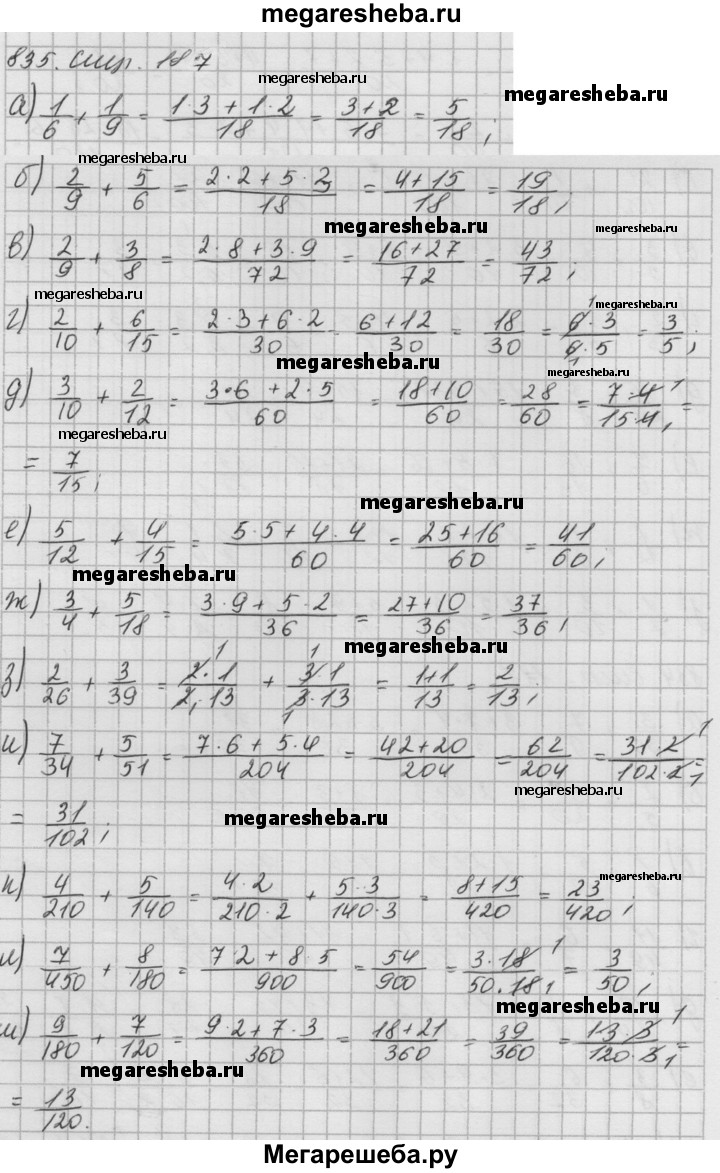 megaresheba.ru
835. стр. 187
megaresheba.ru
megaresheba.ru
а) 1/6 + 1/9 = (1·3 + 1·2)/18 = (3+2)/18 = 5/18;
megaresheba.ru
б) 2/9 + 5/6 = (2·2 + 5·3)/18 = (4+15)/18 = 19/18;
megaresheba.ru
megaresheba.ru
в) 2/9 + 3/8 = (2·8 + 3·9)/72 = (16+27)/72 = 43/72;
megaresheba.ru
megaresheba.ru
г) 2/10 + 6/15 = (2·3 + 6·2)/30 = (6+12)/30 = 18/30 = (6·3)/(6·5) = 3/5;
megaresheba.ru
megaresheba.ru
д) 3/10 + 2/12 = (3·6 + 2·5)/60 = (18+10)/60 = 28/60 = (7·4)/(15·4) =
megaresheba.ru
= 7/15;
megaresheba.ru
е) 5/12 + 4/15 = (5·5 + 4·4)/60 = (25+16)/60 = 41/60;
megaresheba.ru
ж) 3/4 + 5/18 = (3·9 + 5·2)/36 = (27+10)/36 = 37/36;
megaresheba.ru
з) 2/26 + 3/39 = (2·1)/(2·13) + (3·1)/(3·13) = (1+1)/13 = 2/13;
и) 7/34 + 5/51 = (7·6 + 5·4)/204 = (42+20)/204 = 62/204 = (31·2)/(102·2) =
megaresheba.ru
= 31/102;
megaresheba.ru
megaresheba.ru
к) 4/210 + 5/140 = (4·2)/(210·2) + (5·3)/(140·3) = (8+15)/420 = 23/420;
л) 7/450 + 8/180 = (7·2 + 8·5)/900 = 54/900 = (3·18)/(50·18) = 3/50;
megaresheba.ru
м) 9/180 + 7/120 = (9·2 + 7·3)/360 = (18+21)/360 = 39/360 = (13·3)/(120·3) =
megaresheba.ru
= 13/120.
Мегарешеба.ру